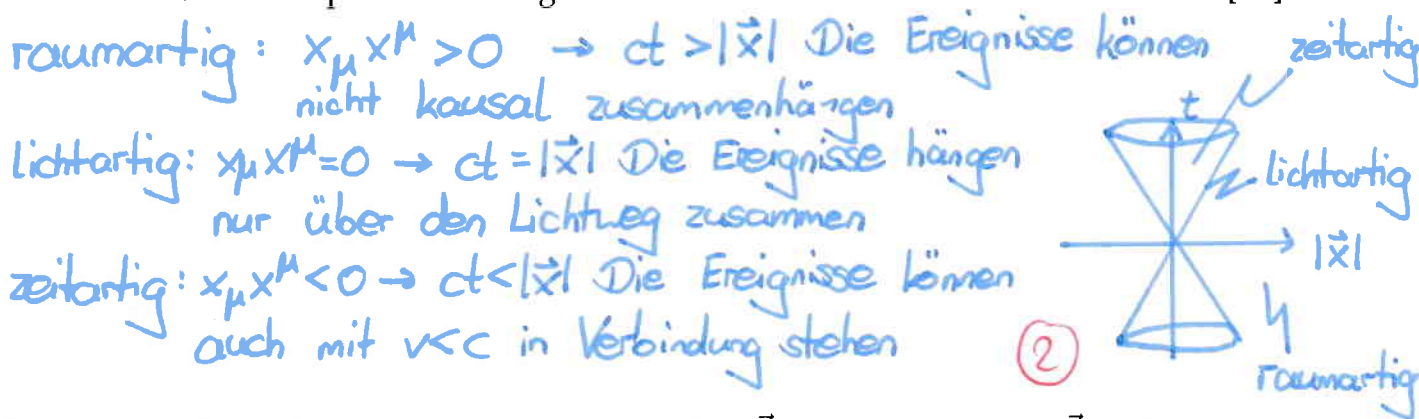 raumartig: x_μ x^μ > 0 → ct > |x⃗| Die Ereignisse können
nicht kausal zusammenhängen
lichtartig: x_μ x^μ = 0 → ct = |x⃗| Die Ereignisse hängen
nur über den Lichtweg zusammen
zeitartig: x_μ x^μ < 0 → ct < |x⃗| Die Ereignisse können
auch mit v < c in Verbindung stehen
zeitartig
t
lichtartig
|x⃗|
raumartig
2